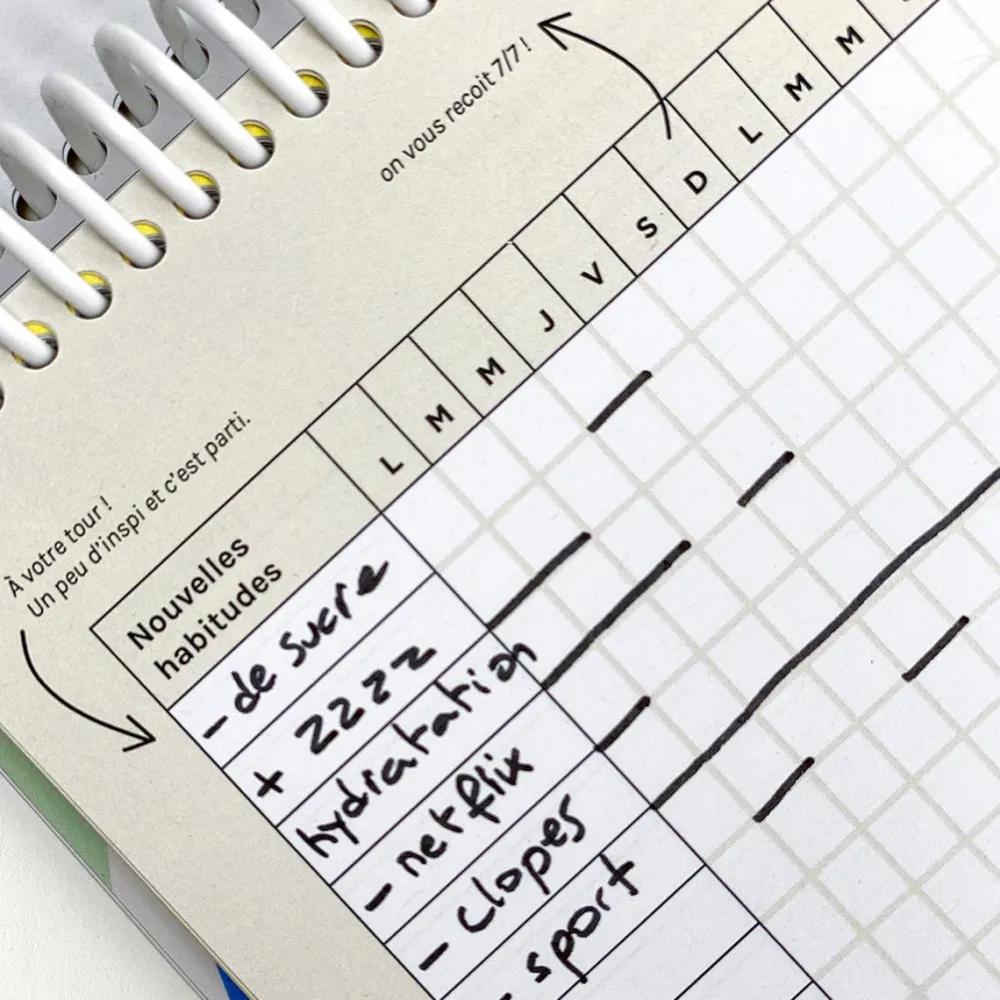 on vous recoit 7/7 !
À votre tour !
Un peu d'inspi et c'est parti.
L M M J V S D L M M
Nouvelles
habitudes
- de sucre
+ zzzz
hydratation
- netflix
- clopes
- sport